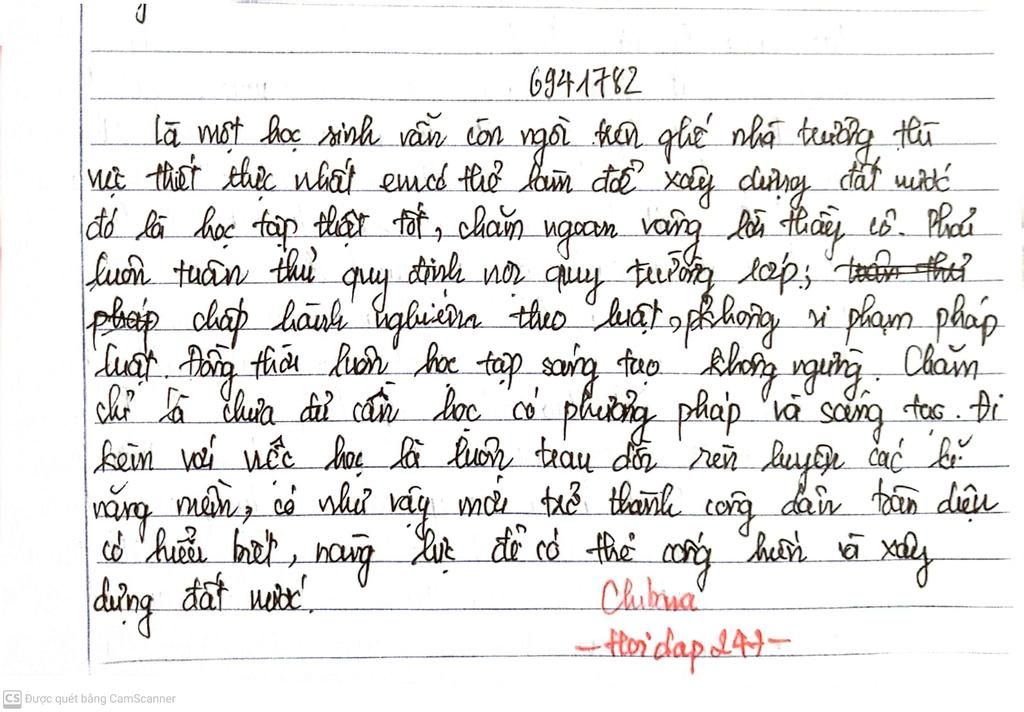 6941782
Là một học sinh vẫn còn ngồi trên ghế nhà trường thì
việc thiết thực nhất em có thể làm để xây dựng đất nước
đó là học tập thật tốt, chăm ngoan vâng lời thầy cô. Phải
luôn tuân thủ quy định nội quy trường lớp; tuân thủ
pháp chấp hành nghiêm theo luật, không vi phạm pháp
luật. Đồng thời luôn học tập sáng tạo không ngừng. Chăm
chỉ là chưa đủ cần học có phương pháp và sáng tạo. Đi
kèm với việc học là luôn trau dồi rèn luyện các kĩ
năng mềm, có như vậy mới trở thành công dân toàn diện
có hiểu biết, năng lực để có thể cống hiến và xây
dựng đất nước.
Chibma
- Hoi dap 247 -
CS Được quét bằng CamScanner